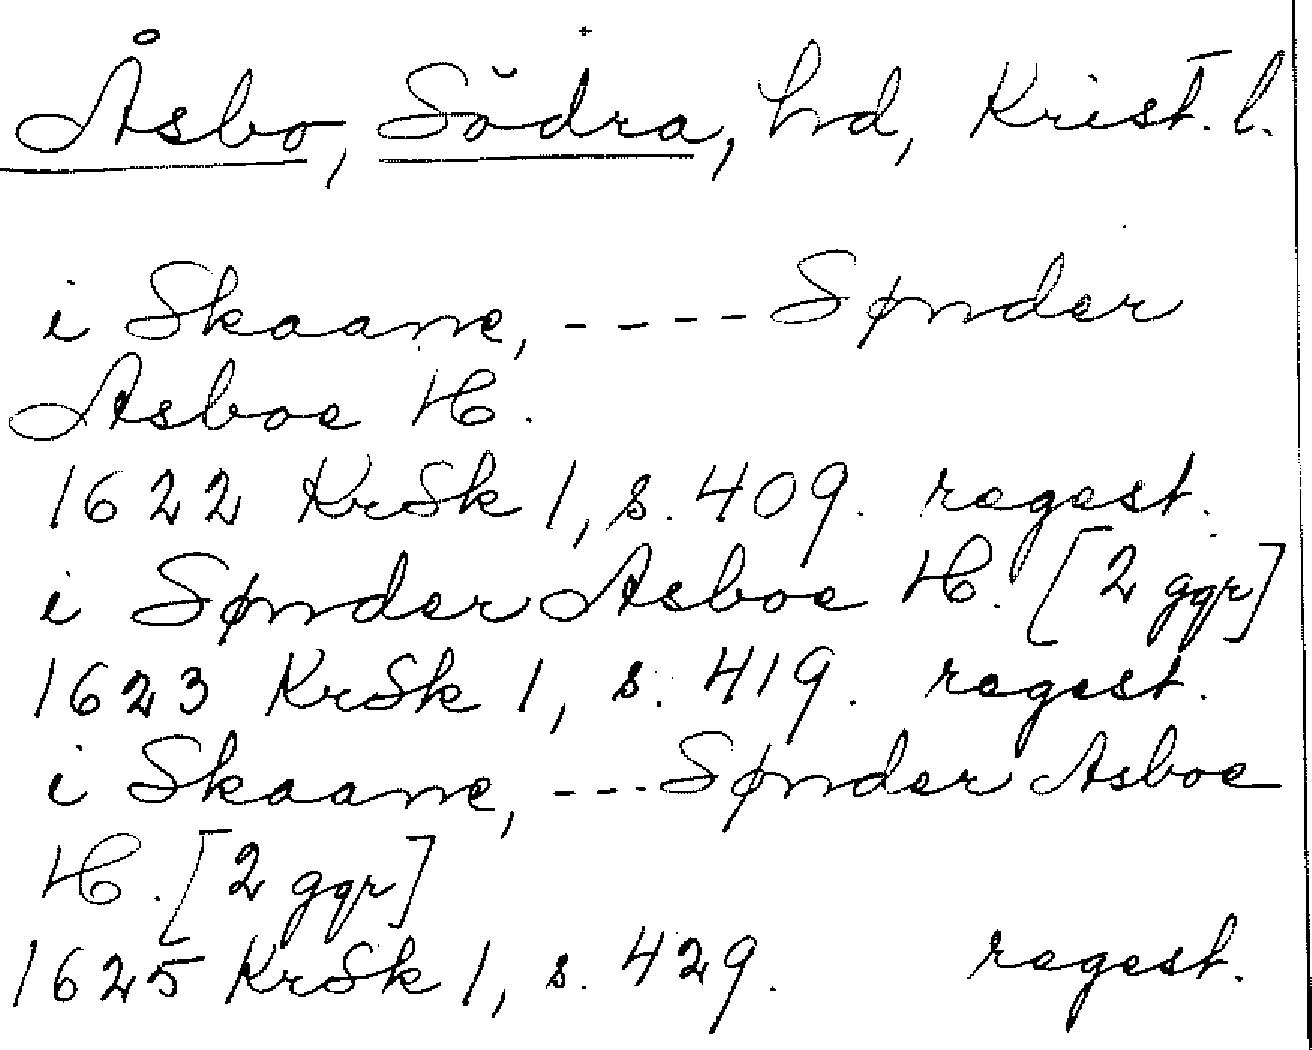 Åsbo, Södra, hd, Krist. l.
i Skaane, ---- Sønder
Asboe H.
1622 KrSk 1, s. 409. regest.
i Sønder Asboe H. [2 ggr]
1623 KrSk 1, s. 419. regest.
i Skaane, --- Sønder Asboe
H. [2 ggr]
1625 KrSk 1, s. 429. regest.